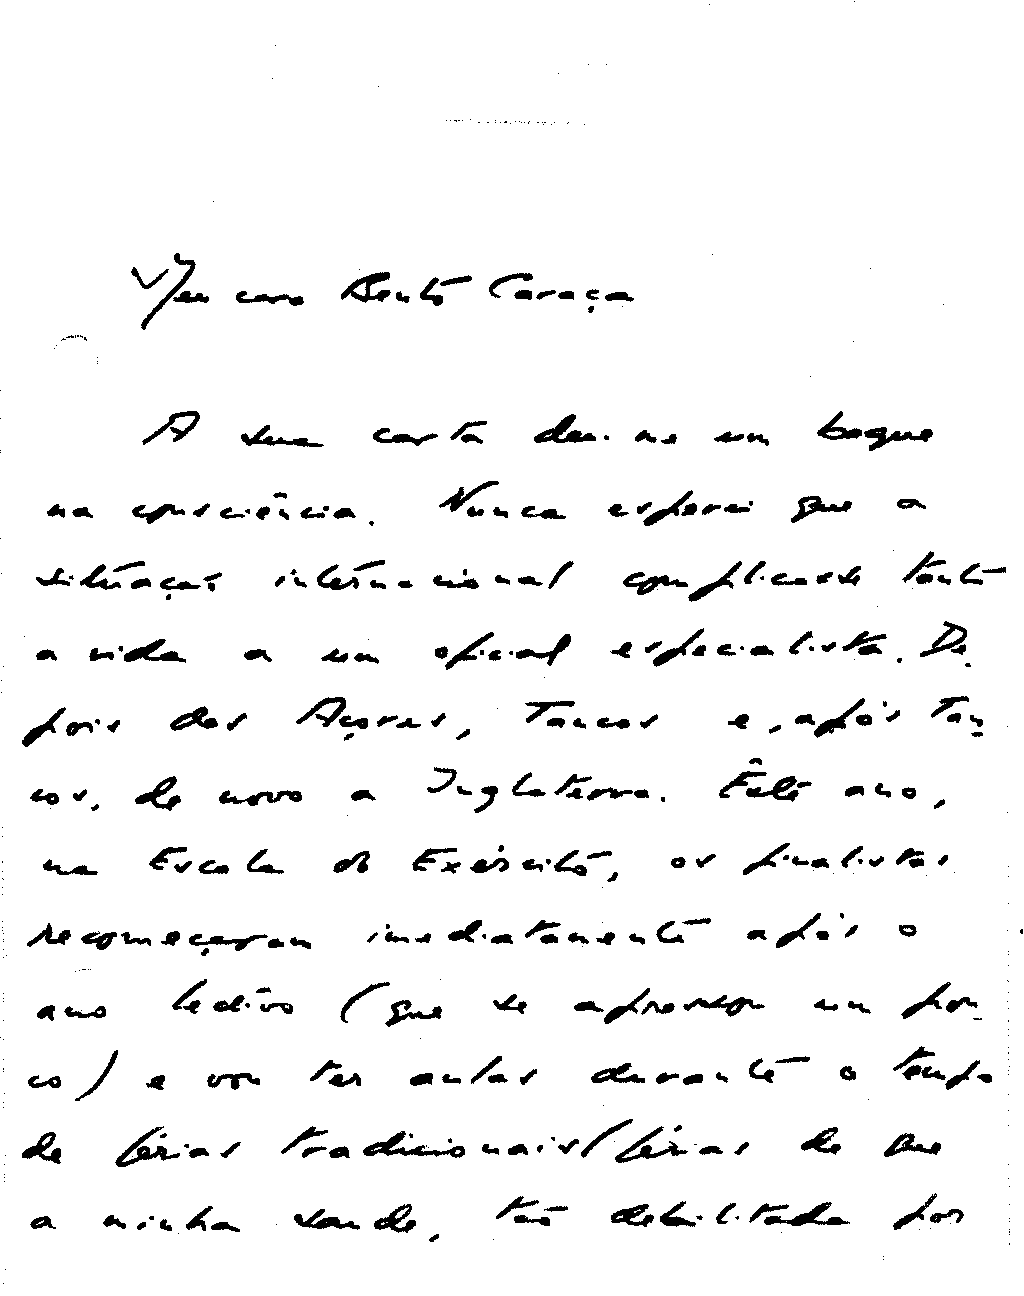 Meu caro Bento Caraça
A sua carta deu-me um baque
na consciência. Nunca esperei que a
situação internacional complicasse tanto
a vida a um oficial especialista. De-
pois dos Açores, Tancos e, após Tan-
cos, de novo a Inglaterra. Êste ano,
na Escola do Exército, os finalistas
recomeçaram imediatamente após o
ano lectivo (que se apressou um pou-
co) e vou ter aulas durante o tempo
de férias tradicionais (férias de que
a minha saude, tão debilitada por